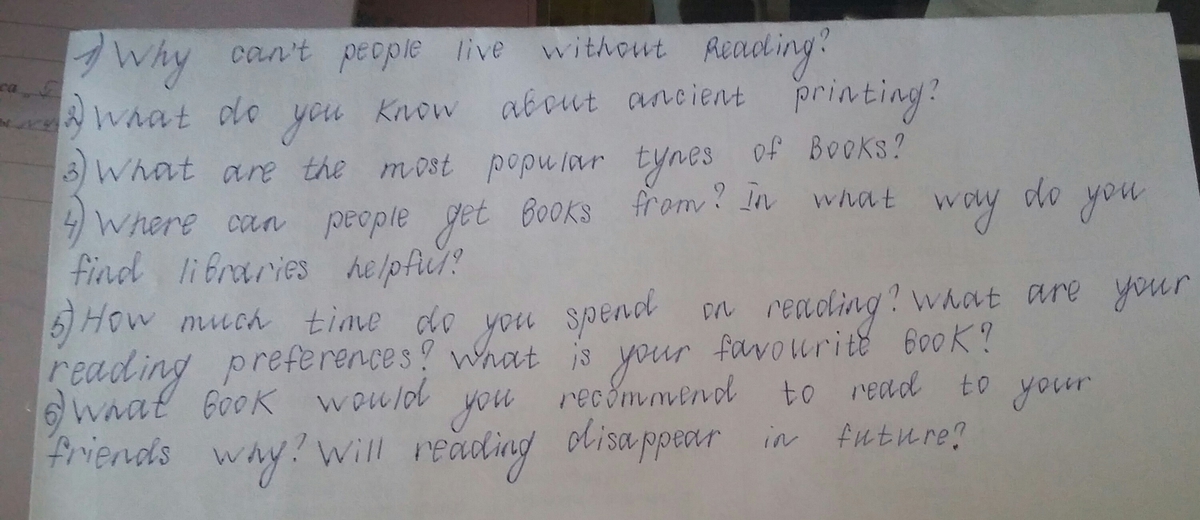 1) Why can't people live without Reading?
2) What do you know about ancient printing?
3) What are the most popular tynes of Books?
4) Where can people get Books from? In what way do you
find libraries helpful?
5) How much time do you spend on reading? What are your
reading preferences? What is your favourite Book?
6) What Book would you recommend to read to your
friends why? Will reading disappear in future?